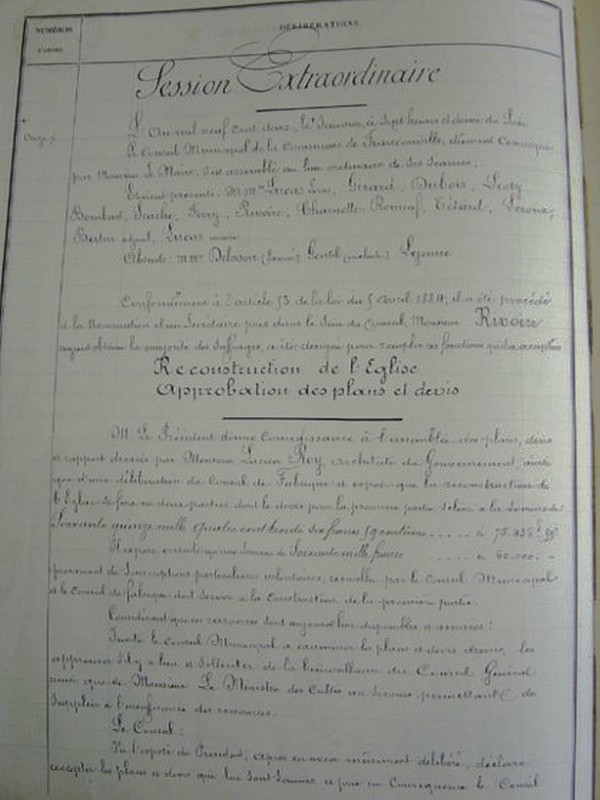 NUMÉROS
D'ORDRE
DÉLIBÉRATIONS
Session Extraordinaire
L'An mil neuf cent deux, le Janvier, à Sept heures et demie du Soir
Le Conseil Municipal de la Commune de Franconville, dûment Convoqué
par Monsieur Le Maire, s'est assemblé au lieu ordinaire de Ses Séances;
Etaient présents: M. Mrs Lucas Léon, Gérard, Dubois,
Bombart, Ferry, Rivoire, Chamotte, Romeuf, Tétard, Leroux,
Bertin adjoint, Lucas maire
Absents: MM. Gentil (malade) Lejeune
Conformément à l'article 53 de la loi du 5 Avril 1884, il a été procédé
à la Nomination d'un Secrétaire pris dans le Sein du Conseil, Monsieur Rivoire
ayant obtenu la majorité des Suffrages, a été désigné pour remplir ces fonctions qu'il a acceptées
Reconstruction de l'Eglise
Approbation des plans et devis
M. Le Président donne Connaissance à l'assemblée des plans, devis
et rapport dressés par Monsieur Lucien Roy, architecte du Gouvernement, ainsi
que d'une délibération du Conseil de Fabrique et expose que la reconstruction de
l'Eglise se fera en deux parties dont le devis pour la première partie s'élève à la Somme de
Soixante quinze mille quatre cent trente six francs 59 centimes ..... ci 75.436f 59
Il expose ensuite qu'une Somme de Soixante mille francs ..... ci 60.000 -
provenant de Souscriptions particulières volontaires, recueillies par le Conseil Municipal
et le Conseil de fabrique doit servir à la Construction de la première partie.
Considérant que ces ressources sont aujourd'hui disponibles et assurées;
Invite le Conseil Municipal à examiner les plans et devis dressés, les
approuver s'il y a lieu et Solliciter de la bienveillance du Conseil Général
ainsi que de Monsieur Le Ministre des Cultes un Secours permettant de
Suppléer à l'insuffisance des ressources.
Le Conseil:
Vu l'exposé du Président, après en avoir mûrement délibéré, déclare
accepter les plans et devis qui lui sont Soumis et prie en Conséquence le Conseil